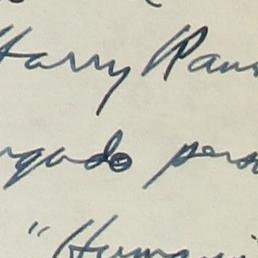 Harry Rans
rgado perso
"Humani